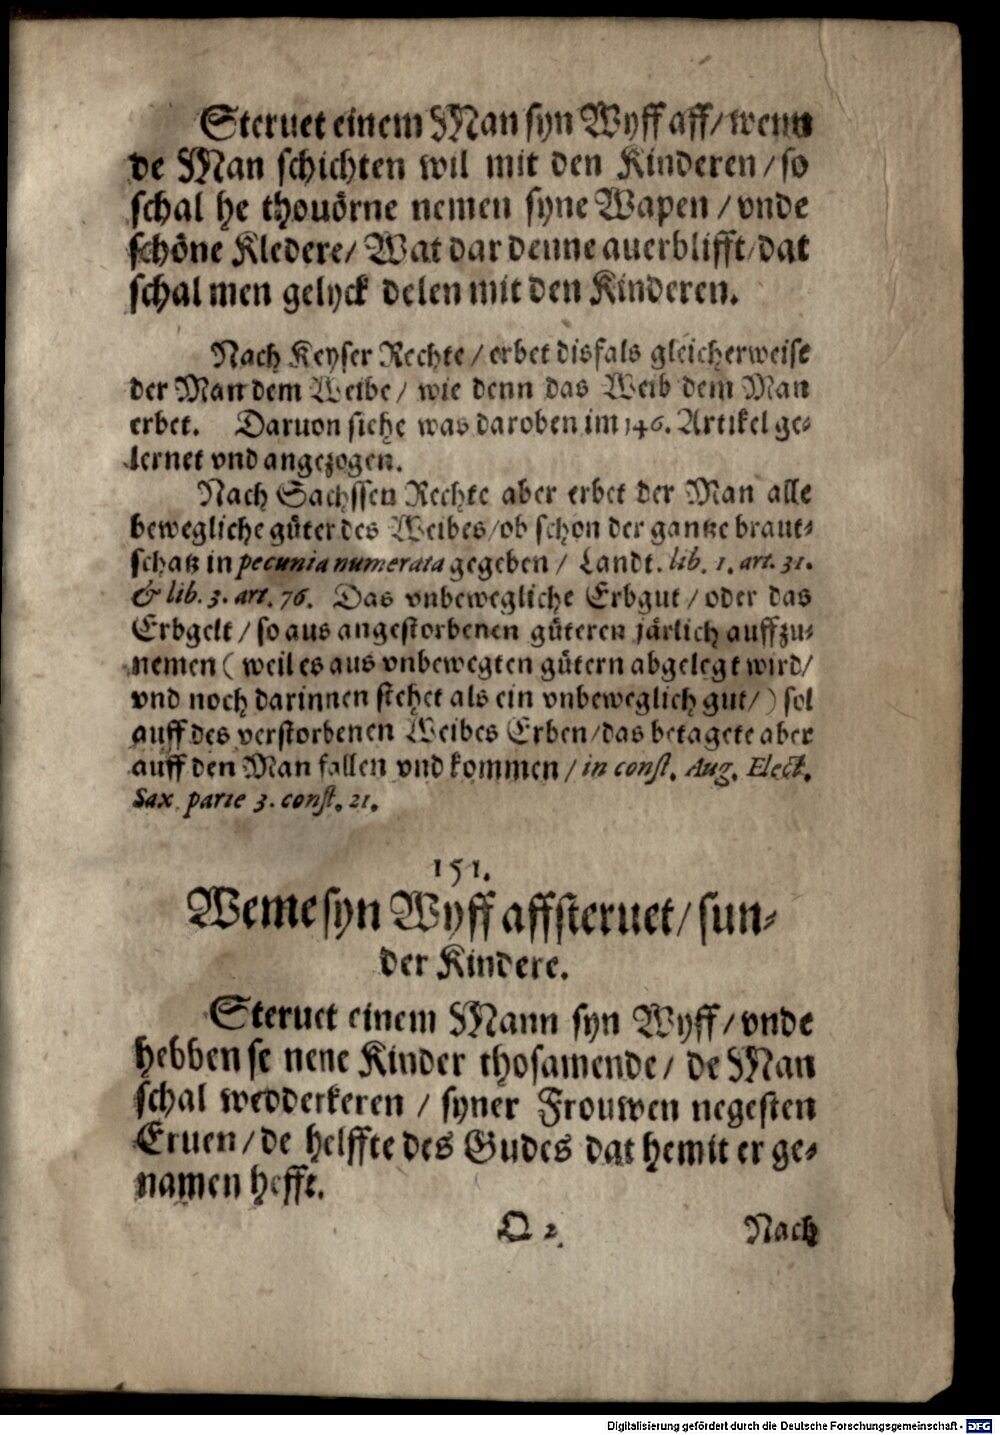 Steruet einem Man syn Wyff aff/ wenn
de Man schichten wil mit den Kinderen/ so
schal he thouörne nemen syne Wapen / vnde
schöne Kledere/ Wat dar denne auerblifft/ dat
schal men gelyck delen mit den Kinderen.
Nach Keyser Rechte / erbet disfals gleicherweise
der Man dem Weibe / wie denn das Weib dem Man
erbet. Daruon siehe was daroben im 146. Artikel ge-
lernet vnd angezogen.
Nach Sachssen Rechte aber erbet der Man alle
bewegliche güter des Weibes/ ob schon der gantze braut-
schatz in pecunia numerata gegeben / Landt. lib. 1. art. 31.
& lib. 3. art. 76. Das vnbewegliche Erbgut / oder das
Erbgelt / so aus angestorbenen güteren järlich auffzu-
nemen ( weil es aus vnbewegten gütern abgelegt wird/
vnd noch darinnen stehet als ein vnbeweglich gut/ ) sol
auff des verstorbenen Weibes Erben/ das betagete aber
auff den Man fallen vnd kommen / in const. Aug. Elect.
Sax. parte 3. const. 21.
151.
Weme syn Wyff affsteruet/ sun-
der Kindere.
Steruet einem Mann syn Wyff/ vnde
hebben se nene Kinder thosamende/ de Man
schal wedderkeren / syner Frouwen negesten
Eruen/ de helffte des Gudes dat he mit er ge-
namen hefft.
Q 2. Nach
Digitalisierung gefördert durch die Deutsche Forschungsgemeinschaft - DFG